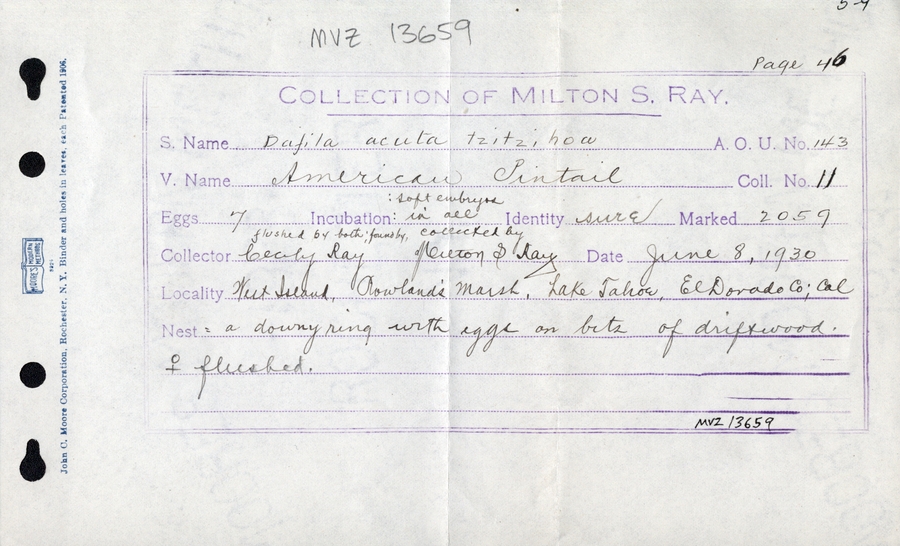 5-4
MVZ 13659
Page 46
COLLECTION OF MILTON S. RAY.
S. Name Dafila acuta tzitzihoa A. O. U. No. 143
V. Name American Pintail Coll. No. 11
: soft embryos
Eggs 7 Incubation: in all Identity sure Marked 2059
flushed by both; found by, collected by
Collector Cecily Ray Milton S Ray Date June 8, 1930
Locality West Island, Rowland's Marsh, Lake Tahoe, El Dorado Co; Cal
Nest = a downy ring with eggs on bits of driftwood.
♀ flushed.
MVZ 13659
John C. Moore Corporation, Rochester, N. Y. Binder and holes in leaves, each Patented 1906.
MOORE'S MODERN METHODS